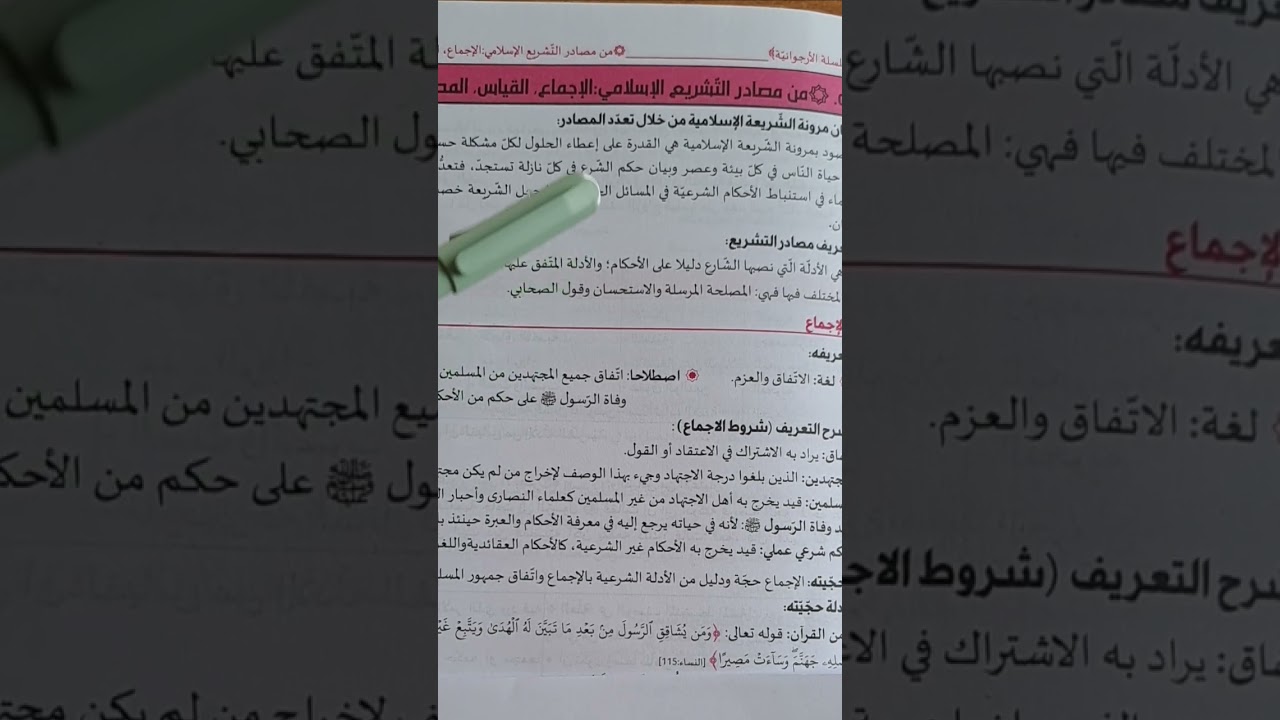 سلسلة الأرجوانيّة﴾ ۞من مصادر التّشريع الإسلامي:الإجماع،
۞من مصادر التّشريع الإسلامي:الإجماع، القياس، المص
ان مرونة الشّريعة الإسلامية من خلال تعدّد المصادر:
صود بمرونة الشّريعة الإسلامية هي القدرة على إعطاء الحلول لكلّ مشكلة حس
حياة النّاس في كلّ بيئة وعصر وبيان حكم الشّرع في كلّ نازلة تستجدّ، فتعدّ
ماء في استنباط الأحكام الشرعيّة في المسائل الشّريعة خص
ان.
عريف مصادر التشريع:
هي الأدلّة الّتي نصبها الشّارع دليلا على الأحكام؛ والأدلة المتّفق عليها
لمختلف فيها فهي: المصلحة المرسلة والاستحسان وقول الصحابي.
لإجماع
عريفه:
لغة: الاتّفاق والعزم. ۞ اصطلاحا: اتّفاق جميع المجتهدين من المسلمين
وفاة الرّسول ﷺ على حكم من الأحكا
شرح التعريف (شروط الاجماع):
فاق: يراد به الاشتراك في الاعتقاد أو القول.
جتهدين: الذين بلغوا درجة الاجتهاد وجيء بهذا الوصف لإخراج من لم يكن مجته
سلمين: قيد يخرج به أهل الاجتهاد من غير المسلمين كعلماء النصارى وأحبار ال
د وفاة الرّسول ﷺ: لأنه في حياته يرجع إليه في معرفة الأحكام والعبرة حينئذ ب
كم شرعي عملي: قيد يخرج به الأحكام غير الشرعية، كالأحكام العقائديةواللغ
حجّيته: الإجماع حجّة ودليل من الأدلة الشرعية بالإجماع واتّفاق جمهور المسل
دلة حجّيّته:
من القرآن: قوله تعالى: ﴿وَمَن يُشَاقِقِ ٱلرَّسُولَ مِنۢ بَعْدِ مَا تَبَيَّنَ لَهُ ٱلْهُدَىٰ وَيَتَّبِعْ غَيْ
لِهِۦ جَهَنَّمَ وَسَآءَتْ مَصِيرًا﴾ [النساء:115].